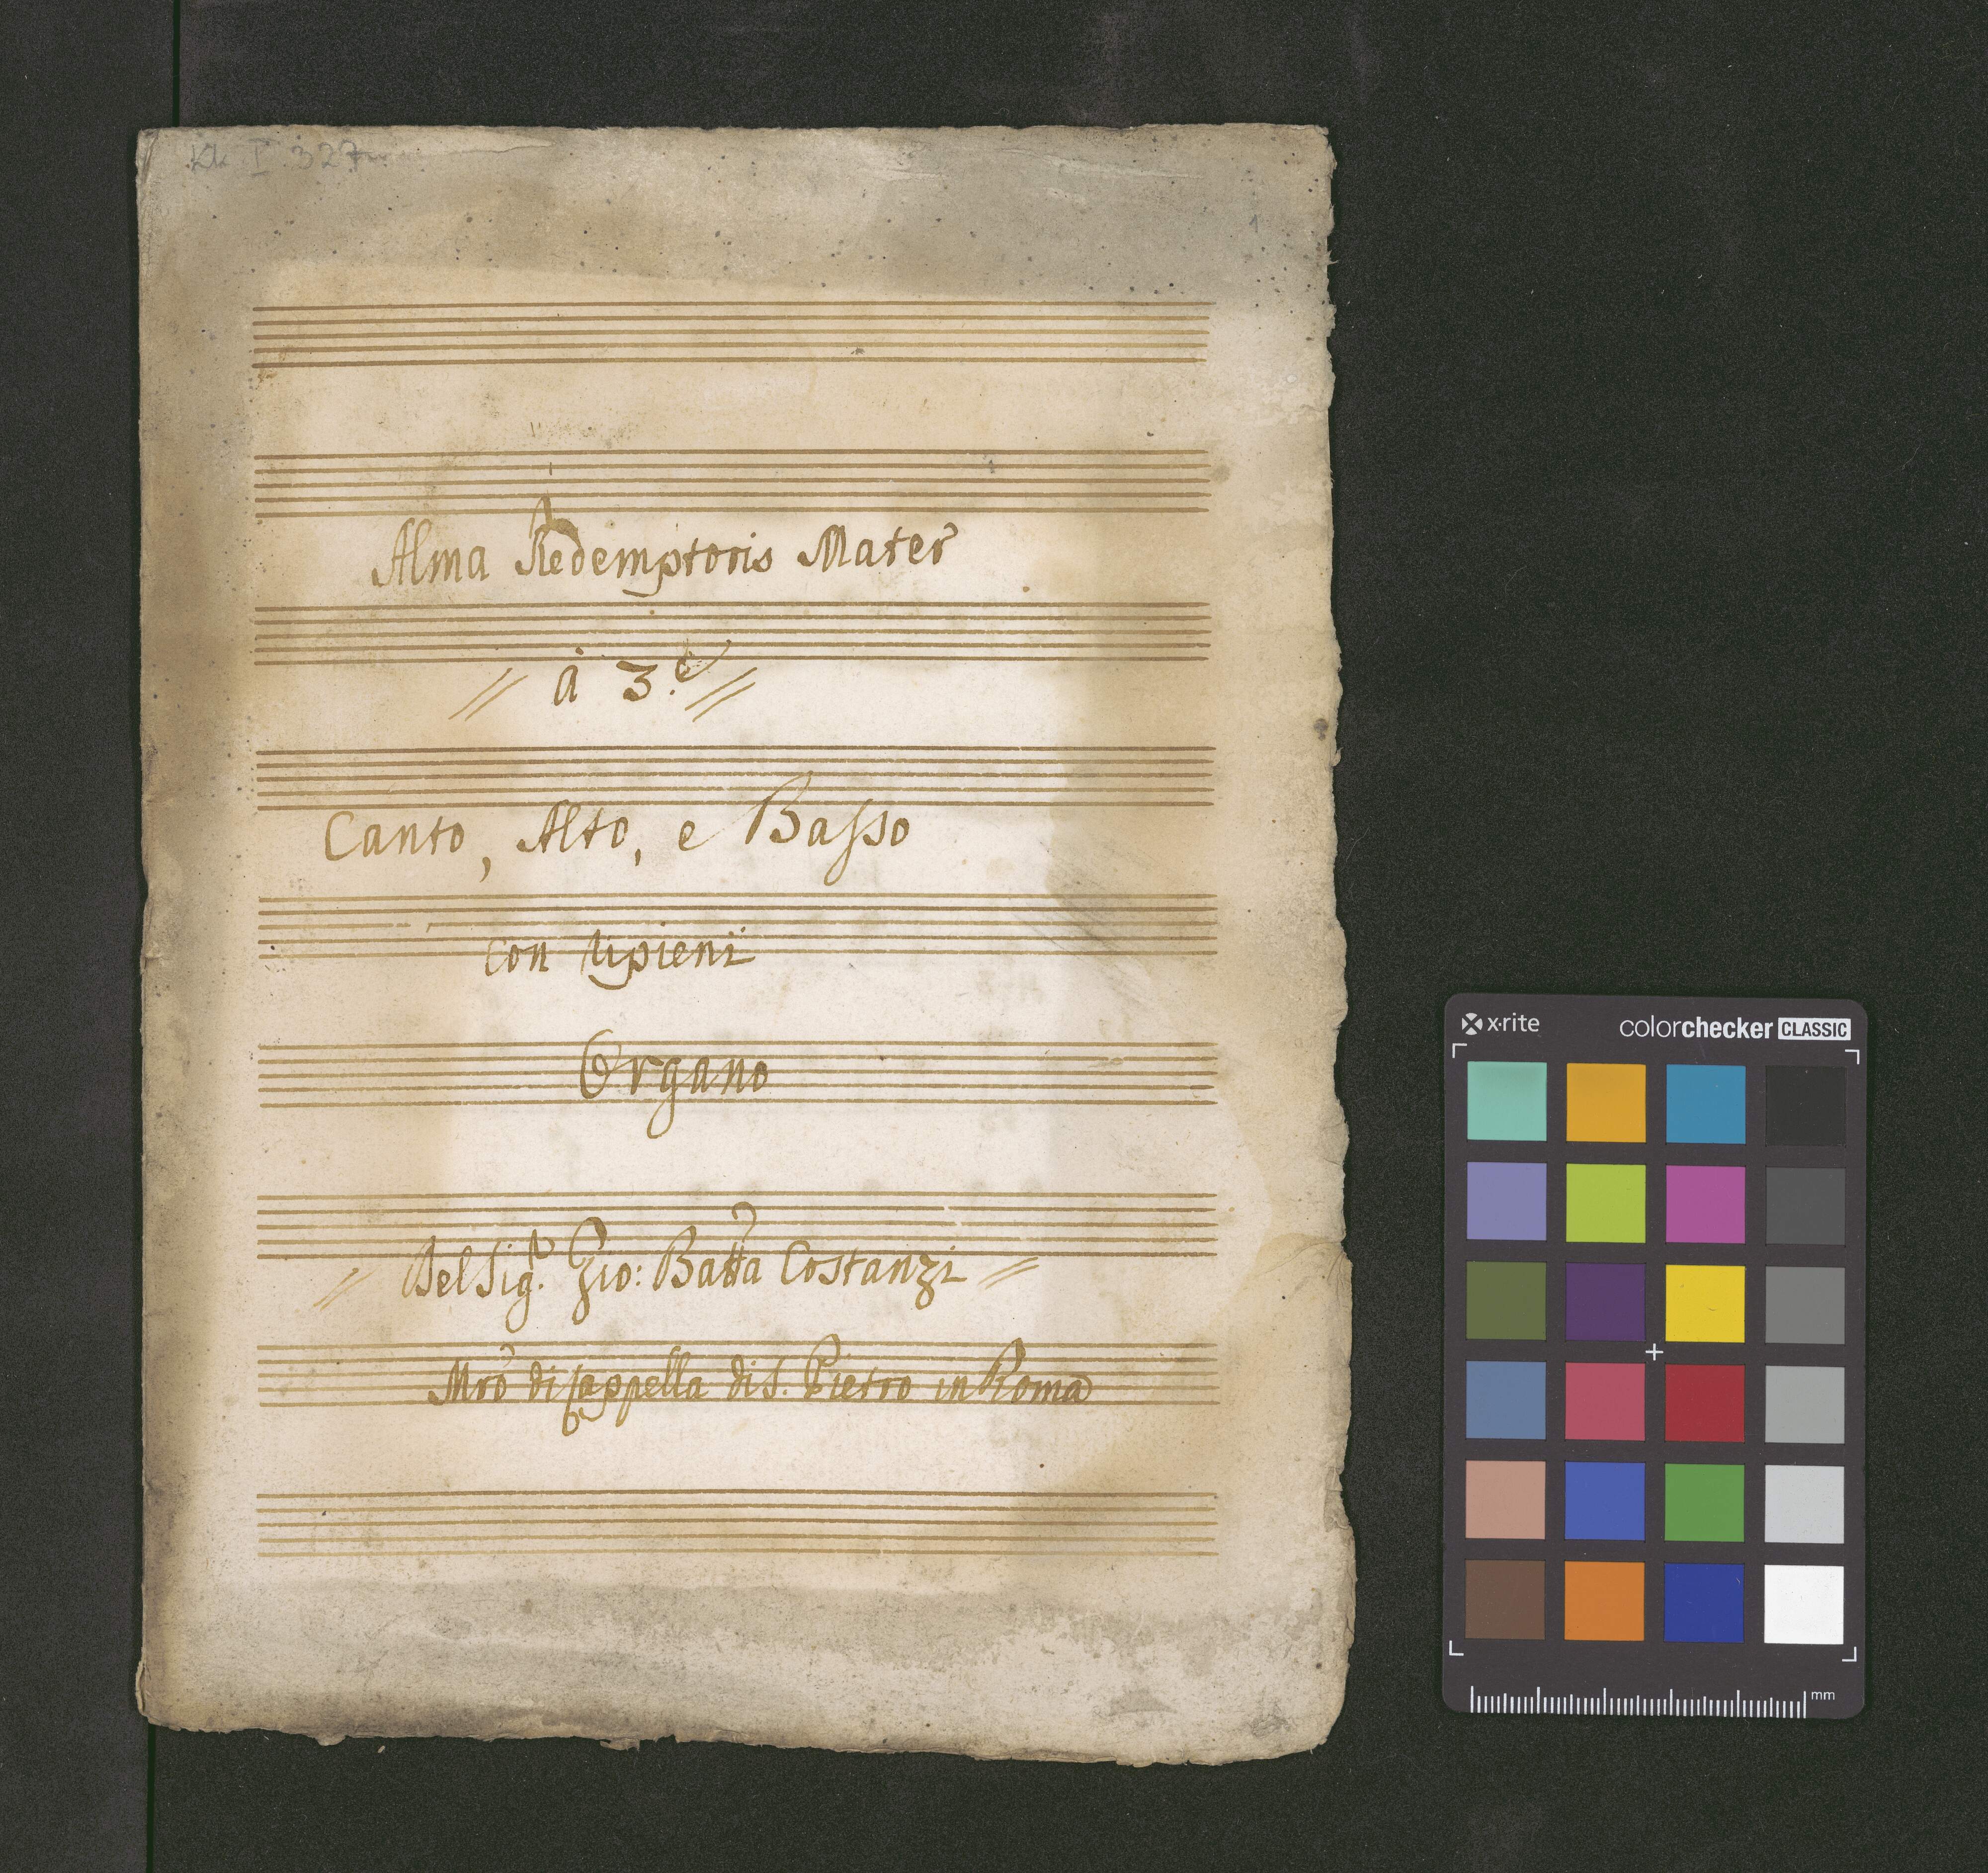 Kk I 327
1
Alma Redemptoris Mater
// à 3.e //
Canto, Alto, e Basso
con ripieni
Organo
// Del Sigr. Gio: Batta Costanzi //
Mro di Cappella di S. Pietro in Roma
x·rite
colorchecker CLASSIC
mm